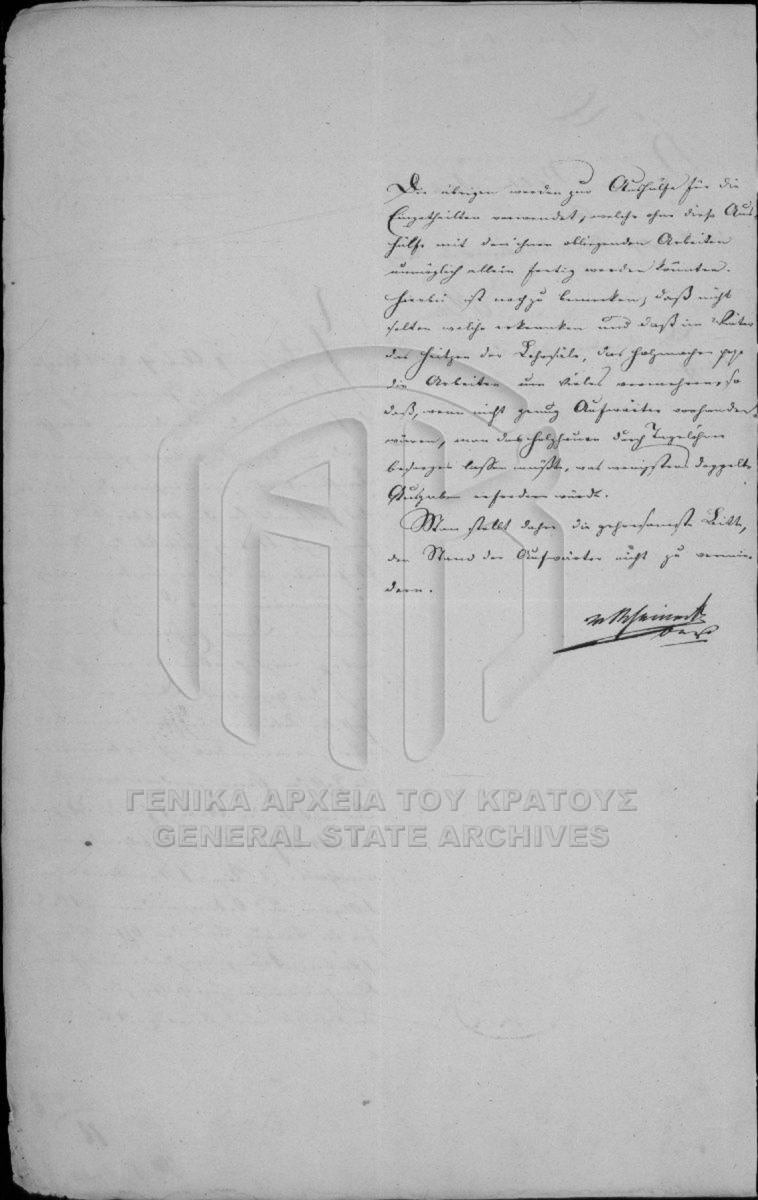 Die übrigen werden zur Aushülfe für die
Eingetheilten verwendet, welche ohne diese Aus-
hülfe mit den ihnen obliegenden Arbeiten
unmöglich allein fertig werden könnten.
Hierbei ist noch zu bemerken, daß nicht
selten welche erkranken und daß im Winter
das Heitzen der Lehrsäle, das Holzmachen
die Arbeiten um Vieles vermehren, so
daß, wenn nicht genug Aufwärter vorhanden
wären, man das Holzhauen durch Tagelöhner
besorgen lassen müßte, was wenigstens doppelte
Ausgaben erfordern würde.
Man stellt daher die gehorsamste Bitte,
den Stand der Aufwärter nicht zu vermin-
dern.
ΓΕΝΙΚΑ ΑΡΧΕΙΑ ΤΟΥ ΚΡΑΤΟΥΣ
GENERAL STATE ARCHIVES